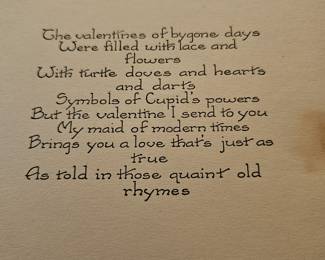 The valentines of bygone days
Were filled with lace and
flowers
With turtle doves and hearts
and darts
Symbols of Cupid's powers
But the valentine I send to you
My maid of modern times
Brings you a love that's just as
true
As told in those quaint old
rhymes